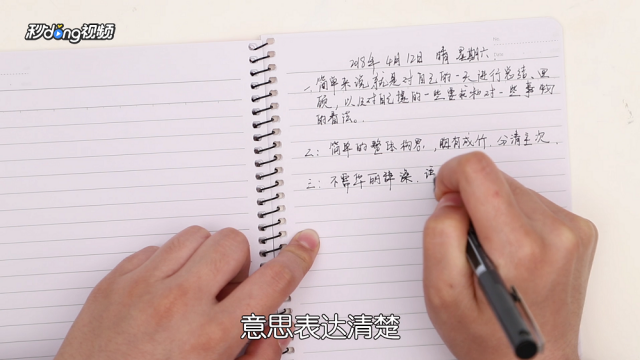 秒dong视频
2018年4月12日 晴 星期六
一、简单来说就是对自己的一天进行总结、回
顾，以及对自己提的一些要求和对一些事物
的看法。
二：简单的整体构思，胸有成竹，分清主次、
三：不需华丽的辞藻，语
意思表达清楚